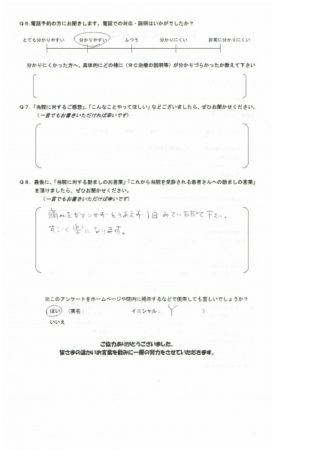 Q6.電話予約の方にお聞きします。電話での対応・説明はいかがでしたか?
とても分かりやすい 分かりやすい ふつう 分かりにくい 非常に分かりにくい
分かりにくかった方へ、具体的にどの様に(RC治療の説明等)が分かりづらかったか教えて下さい
Q7.「当院に対するご感想」、「こんなことやってほしい」などございましたら、ぜひお聞かせください。
(一言でもお書きいただければ幸いです)
Q8.最後に、「当院に対する励ましのお言葉」「これから当院を受診される患者さんへの励ましの言葉」
を頂けましたら、ぜひお聞かせください。
(一言でもお書きいただければ幸いです)
痛みをガマンせず とりあえず 1回 みていただいて下さい。
すごく楽になります。
※このアンケートをホームページや院内に掲示するなどで使用しても宜しいでしょうか?
はい (実名: イニシャル: Y )
いいえ
ご協力ありがとうございました。
皆さまの温かいお言葉を励みに一層の努力をさせていただきます。